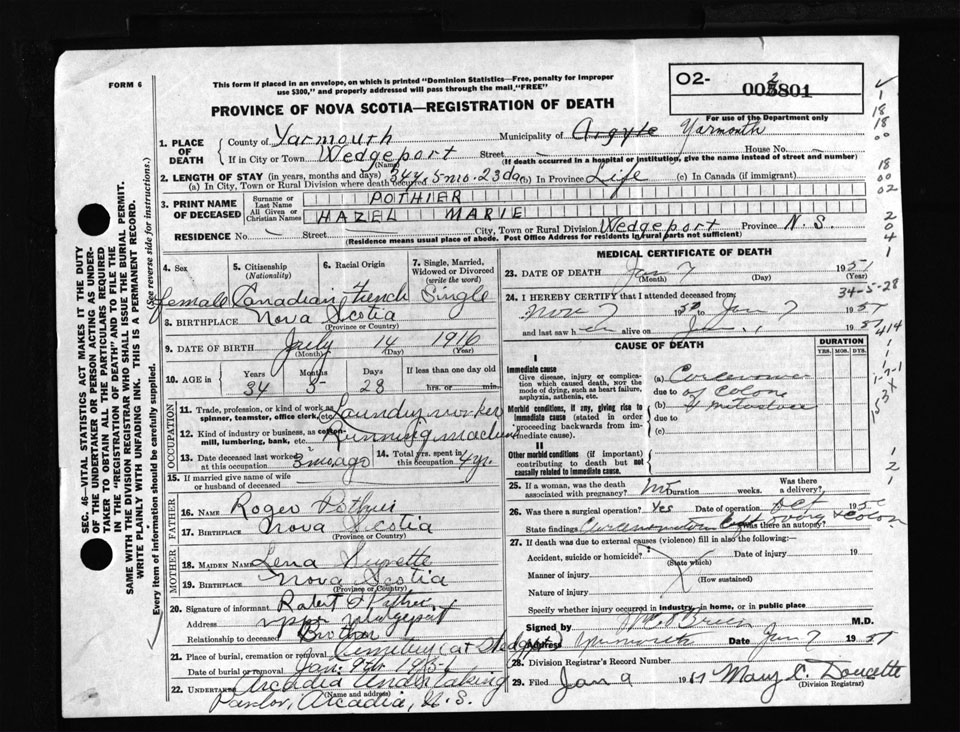 FORM 6
This form if placed in an envelope, on which is printed "Dominion Statistics—Free, penalty for improper
use $300," and properly addressed will pass through the mail, "FREE"
PROVINCE OF NOVA SCOTIA—REGISTRATION OF DEATH
O2-
2
003801
For use of the Department only
1. PLACE OF DEATH
County of Yarmouth Municipality of Argyle Yarmouth
If in City or Town Wedgeport Street — House No. —
(Name) (If death occurred in a hospital or institution, give the name instead of street and number)
2. LENGTH OF STAY (in years, months and days)
(a) In City, Town or Rural Division where death occurred 34 y. 5 mo. 23 da (b) In Province Life (c) In Canada (if immigrant)
3. PRINT NAME OF DECEASED
Surname or Last Name POTHIER
All Given or Christian Names HAZEL MARIE
RESIDENCE No. — Street City, Town or Rural Division Wedgeport Province N.S.
(Residence means usual place of abode. Post Office Address for residents in rural parts not sufficient)
4. Sex
female
5. Citizenship
(Nationality)
Canadian
6. Racial Origin
French
7. Single, Married, Widowed or Divorced
(write the word)
Single
8. BIRTHPLACE Nova Scotia
(Province or Country)
9. DATE OF BIRTH July 14 1916
(Month) (Day) (Year)
10. AGE in Years Months Days If less than one day
34 5 28 hrs. or min.
OCCUPATION
11. Trade, profession, or kind of work as spinner, teamster, office clerk, etc. Laundry worker
12. Kind of industry or business, as cotton-mill, lumbering, bank, etc. Running machine
13. Date deceased last worked at this occupation 3 mo ago
14. Total yrs. spent in this occupation 4 yr.
15. If married give name of wife or husband of deceased
FATHER
16. Name Roger Pothier
17. Birthplace Nova Scotia
(Province or Country)
MOTHER
18. MAIDEN NAME Lena Surette
19. BIRTHPLACE Nova Scotia
(Province or Country)
20. Signature of informant Robert Pothier
Address Upper Wedgeport
Relationship to deceased Brother
21. Place of burial, cremation or removal Cemetery at Wedgeport
Date of burial or removal Jan. 9th 1951
22. UNDERTAKER Arcadia Undertaking
(Name and address)
Parlor, Arcadia, N.S.
MEDICAL CERTIFICATE OF DEATH
23. DATE OF DEATH Jan 7 1951
(Month) (Day) (Year)
34-5-28
24. I HEREBY CERTIFY that I attended deceased from:
Nov 7 1950 to Jan 7 1951
and last saw her alive on Jan. 1951
CAUSE OF DEATH
DURATION
YRS. MOS. DYS.
I
Immediate cause
Give disease, injury or complication which caused death, not the mode of dying, such as heart failure, asphyxia, asthenia, etc.
(a) Carcinoma
due to of Colon
Morbid conditions, if any, giving rise to immediate cause (stated in order proceeding backwards from immediate cause).
(b)
due to
(c)
II
Other morbid conditions (if important) contributing to death but not causally related to immediate cause.
25. If a woman, was the death associated with pregnancy? No Duration weeks. Was there a delivery?
26. Was there a surgical operation? Yes Date of operation Oct 1950
State findings Was there an autopsy?
27. If death was due to external causes (violence) fill in also the following:—
Accident, suicide or homicide? Date of injury 19
(State which)
Manner of injury
(How sustained)
Nature of injury
Specify whether injury occurred in industry, in home, or in public place
Signed by M.D.
Address Yarmouth Date Jan 7 1951
28. Division Registrar's Record Number
29. Filed Jan 9 1951 Mary C. Doucette
(Division Registrar)
SEC. 46—VITAL STATISTICS ACT MAKES IT THE DUTY
OF THE UNDERTAKER OR PERSON ACTING AS UNDERTAKER
TO OBTAIN ALL THE PARTICULARS REQUIRED
IN THE "REGISTRATION OF DEATH" AND TO FILE THE
SAME WITH THE DIVISION REGISTRAR WHO SHALL ISSUE THE BURIAL PERMIT.
WRITE PLAINLY WITH UNFADING INK. THIS IS A PERMANENT RECORD.
Every item of information should be carefully supplied. (See reverse side for instructions.)